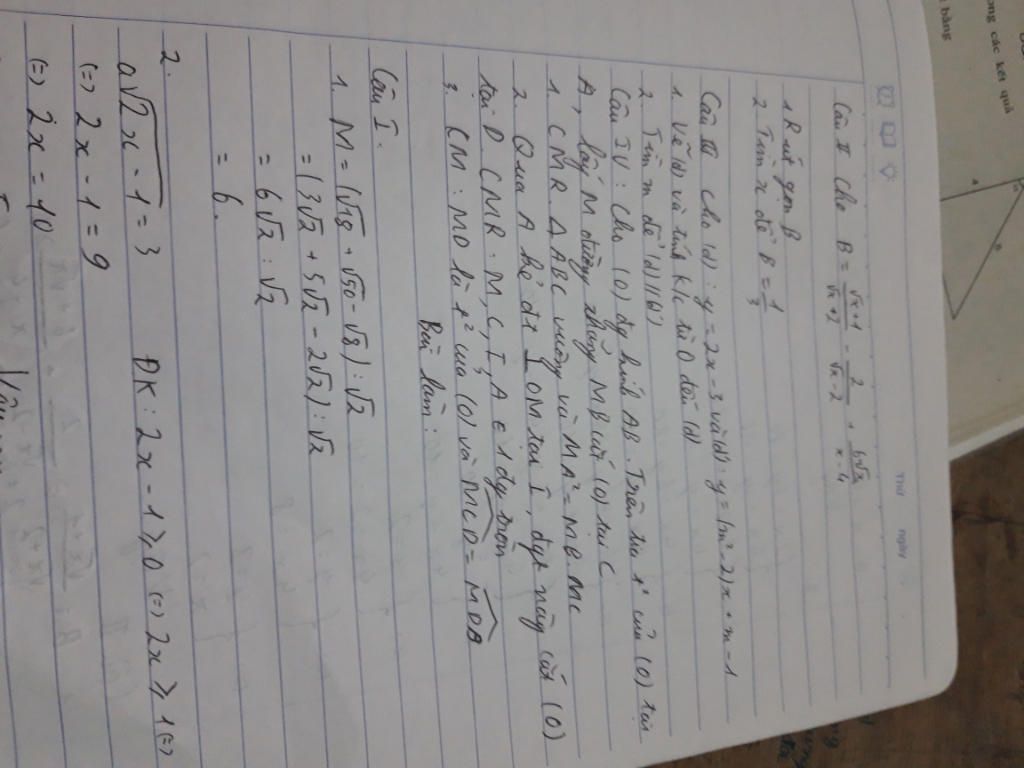 THỨ NGÀY
Câu II Cho B = (√x+1)/(√x+2) - 2/(√x-2) + 6√x/(x-4)
1. Rút gọn B
2. Tìm x để B = 1/3
Câu III Cho (d): y = 2x - 3 và (d'): y = (m² - 2)x + m - 1
1. Vẽ (d) và tính k/c từ O đến (d)
2. Tìm m để (d) // (d')
Câu IV: Cho (O) đg kính AB. Trên tia t² của (O) tại
A, lấy M đường thẳng MB cắt (O) tại C
1. CMR. ΔABC vuông và MA² = MB.MC
2. Qua A kẻ đt ⊥ OM tại I, đgt này cắt (O)
tại D. CMR: M, C, I, A ∈ 1 đg tròn
3. CM: MD là t² của (O) và MCD = MDB
Bài làm:
Câu I.
1. M = (√18 + √50 - √8) : √2
= (3√2 + 5√2 - 2√2) : √2
= 6√2 : √2
= 6.
2.
a √2x - 1 = 3 ĐK: 2x - 1 ≥ 0 (=) 2x ≥ 1 (=)
(=) 2x - 1 = 9
(=) 2x = 10
ong các kết quả
bằng
A
B